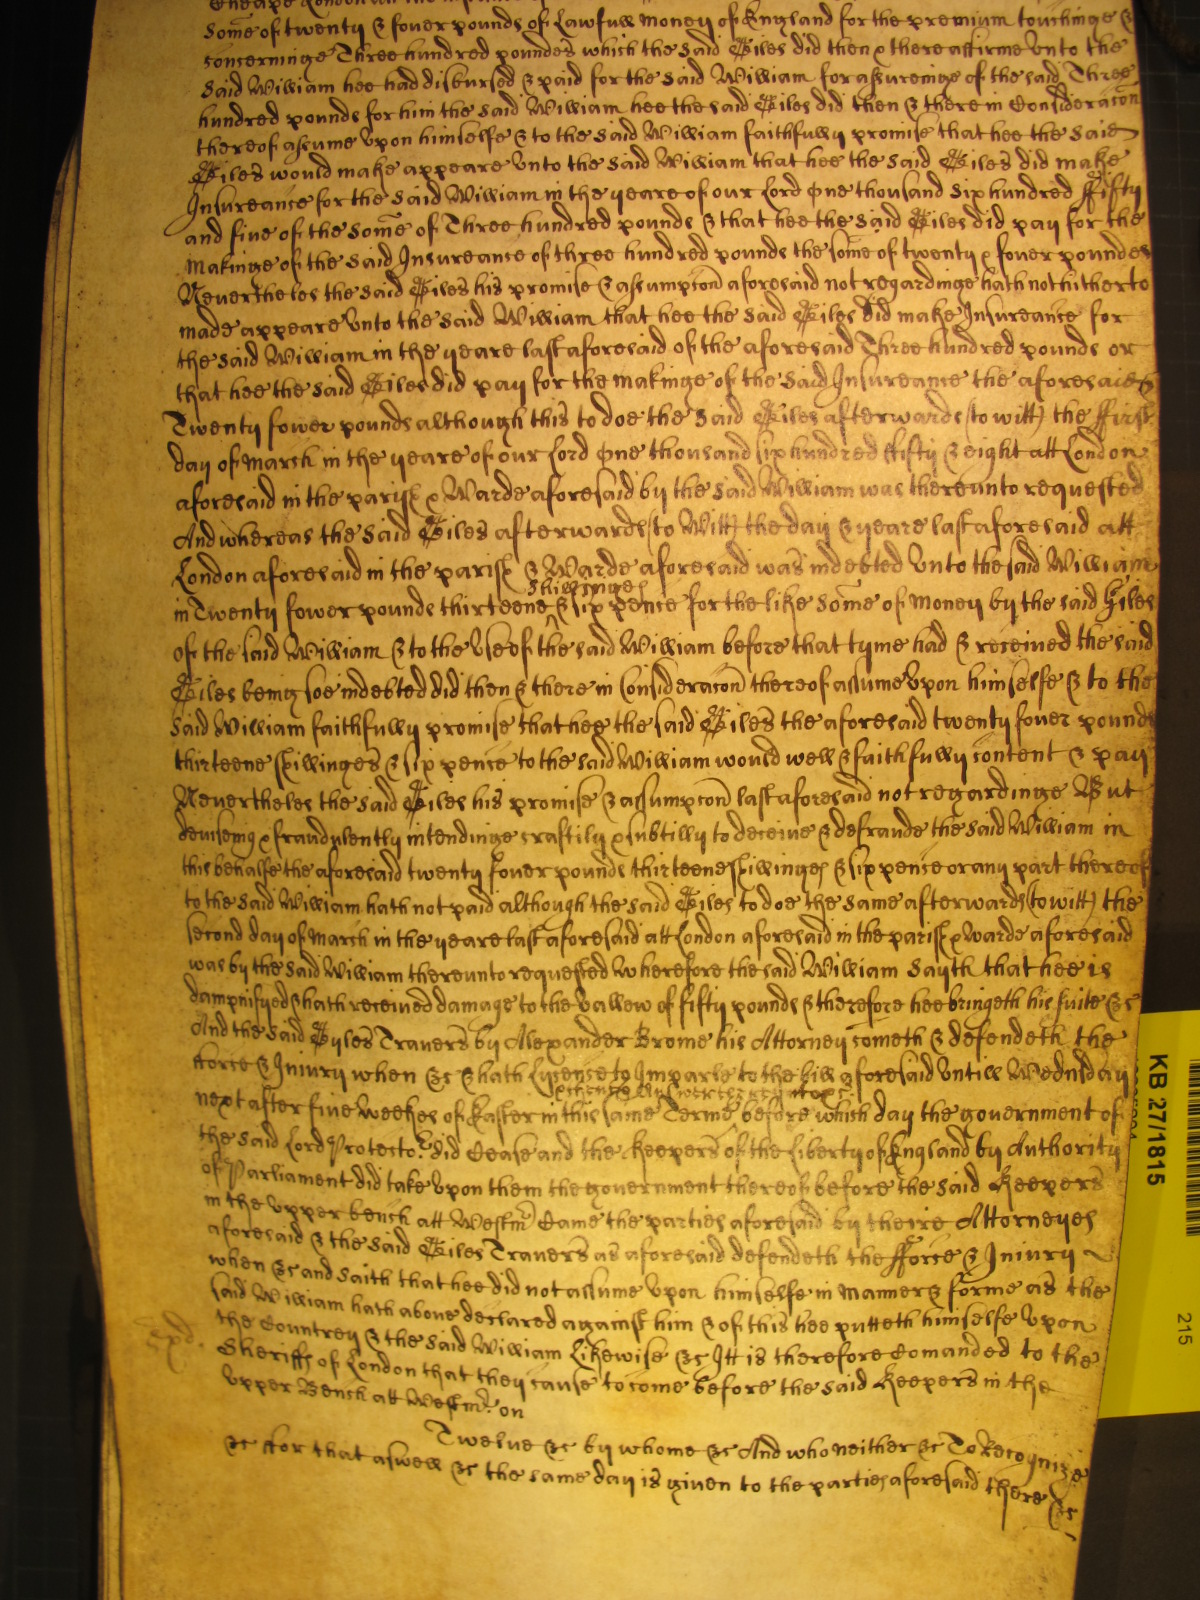 Cheape London
Some of twenty & fower pounds of Lawfull money of England for the premium touchinge &
concerninge Three hundred poundes which the said Giles did then & there affirme unto the
said William hee had disbursed & paid for the said William for assureinge of the said Three
hundred pounds for him the said William hee the said Giles did then & there in Consideracon
thereof assume upon himselfe & to the said William faithfully promise that hee the said
Giles would make appeare unto the said William that hee the said Giles did make
Insureance for the said William in the yeare of our Lord One thousand six hundred ffifty
and five of the some of Three hundred pounds & that hee the said Giles did pay for the
makinge of the said Insureance of three hundred pounds the some of twenty & fower poundes
Nevertheles the said Giles his promise & assumpcon aforesaid not regardinge hath not hitherto
made appeare unto the said William that hee the said Giles did make Insureance for
the said William in the yeare last aforesaid of the aforesaid Three hundred pounds or
that hee the said Giles did pay for the makinge of the said Insureance the aforesaid
Twenty fower pounds although this to doe the said Giles afterwards (to witt) the ffirst
day of March in the yeare of our Lord One thousand six hundred ffifty & eight att London
aforesaid in the parish & Warde aforesaid by the said William was thereunto requested
And whereas the said Giles afterwards (to Witt) the day & yeare last aforesaid att
London aforesaid in the parish & Warde aforesaid was indebted unto the said William
shillinges
in Twenty fower pounds thirteene & six pence for the like some of money by the said Giles
of the said William & to the use of the said William before that tyme had & received the said
Giles being soe indebted did then & there in Consideracon thereof assume upon himselfe & to the
said William faithfully promise that hee the said Giles the aforesaid twenty fower pounds
thirteene shillinges & six pence to the said William would well & faithfully content & pay
Nevertheles the said Giles his promise & assumpcon last aforesaid not regardinge But
deviseing & fraudulently intendinge craftily & subtilly to deceive & defraude the said William in
this behalfe the aforesaid twenty fower pounds thirteene shillinges & six pence or any part thereof
to the said William hath not paid although the said Giles to doe the same afterwards (to witt) the
second day of March in the yeare last aforesaid att London aforesaid in the parish & warde aforesaid
was by the said William thereunto requested Wherefore the said William sayth that hee is
dampnifyed & hath received damage to the vallew of fifty pounds & therefore hee bringeth his suite &c
And the said Gyles Travers by Alexander Brome his Attorney cometh & defendeth the
fforce & Iniury when &c & hath Lycense to Imparle to the bill aforesaid untill Wednsday
next after five Weekes of Easter in this same Terme before which day the government of
the said Lord Protector did Cease and the Keepers of the Liberty of England by Authority
of Parliament did take upon them the government thereof before the said Keepers
in the upper bench att Westmr Came the parties aforesaid by theire Attorneyes
aforesaid & the said Giles Travers as aforesaid defendeth the fforce & Iniury
when &c and saith that hee did not assume upon himselfe in manner & forme as the
said William hath above declared against him & of this hee putteth himselfe upon
the Countrey & the said William Likewise &c Itt is therefore Comanded to the
Sheriffs of London that they cause to come before the said Keepers in the
upper Bench att Westmr on
Twelve &c by whome &c And who neither &c To Recognize
&c ffor that aswell &c the same day is given to the parties aforesaid there &c
KB 27/1815
215